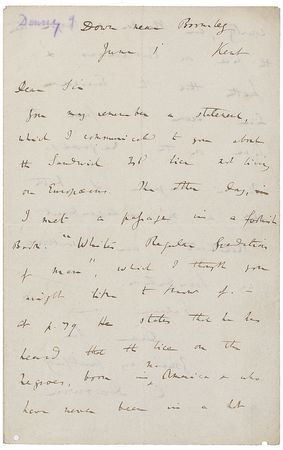 Denny 9
Down near Bromley
June 1 Kent
Dear Sir
You may remember a statement,
which I communicated to you about
the Sandwich Isd lice not living
on Europæans. The other day,
I met a passage in a foolish
Book. "Whites Regular Gradations
of man", which I thought you
might like to know of. —
at p. 79. He states that he has
heard that the lice on the
negroes, born in N. America & who
have never been in a hot